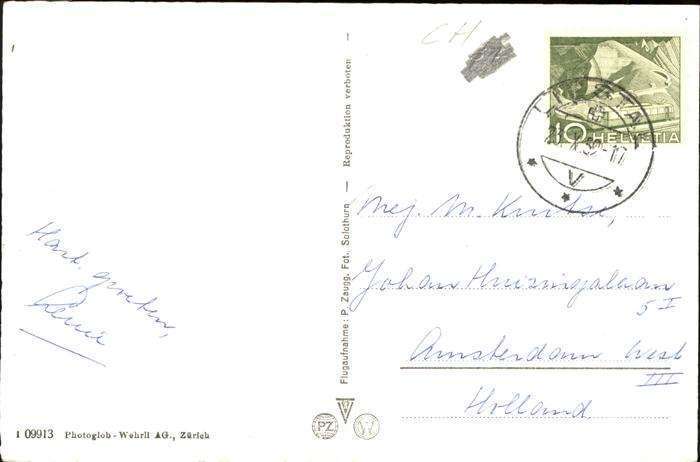 CH
10 HELVETIA
V
Mej. M. Knitse,
Johan Huizingalaan
5 I
Amsterdam West
III
Holland.
Hart. groeten,
Reproduktion verboten
Flugaufnahme: P. Zaugg. Fot. Solothurn
1 09913 Photoglob-Wehrli AG., Zürich
PZ
W